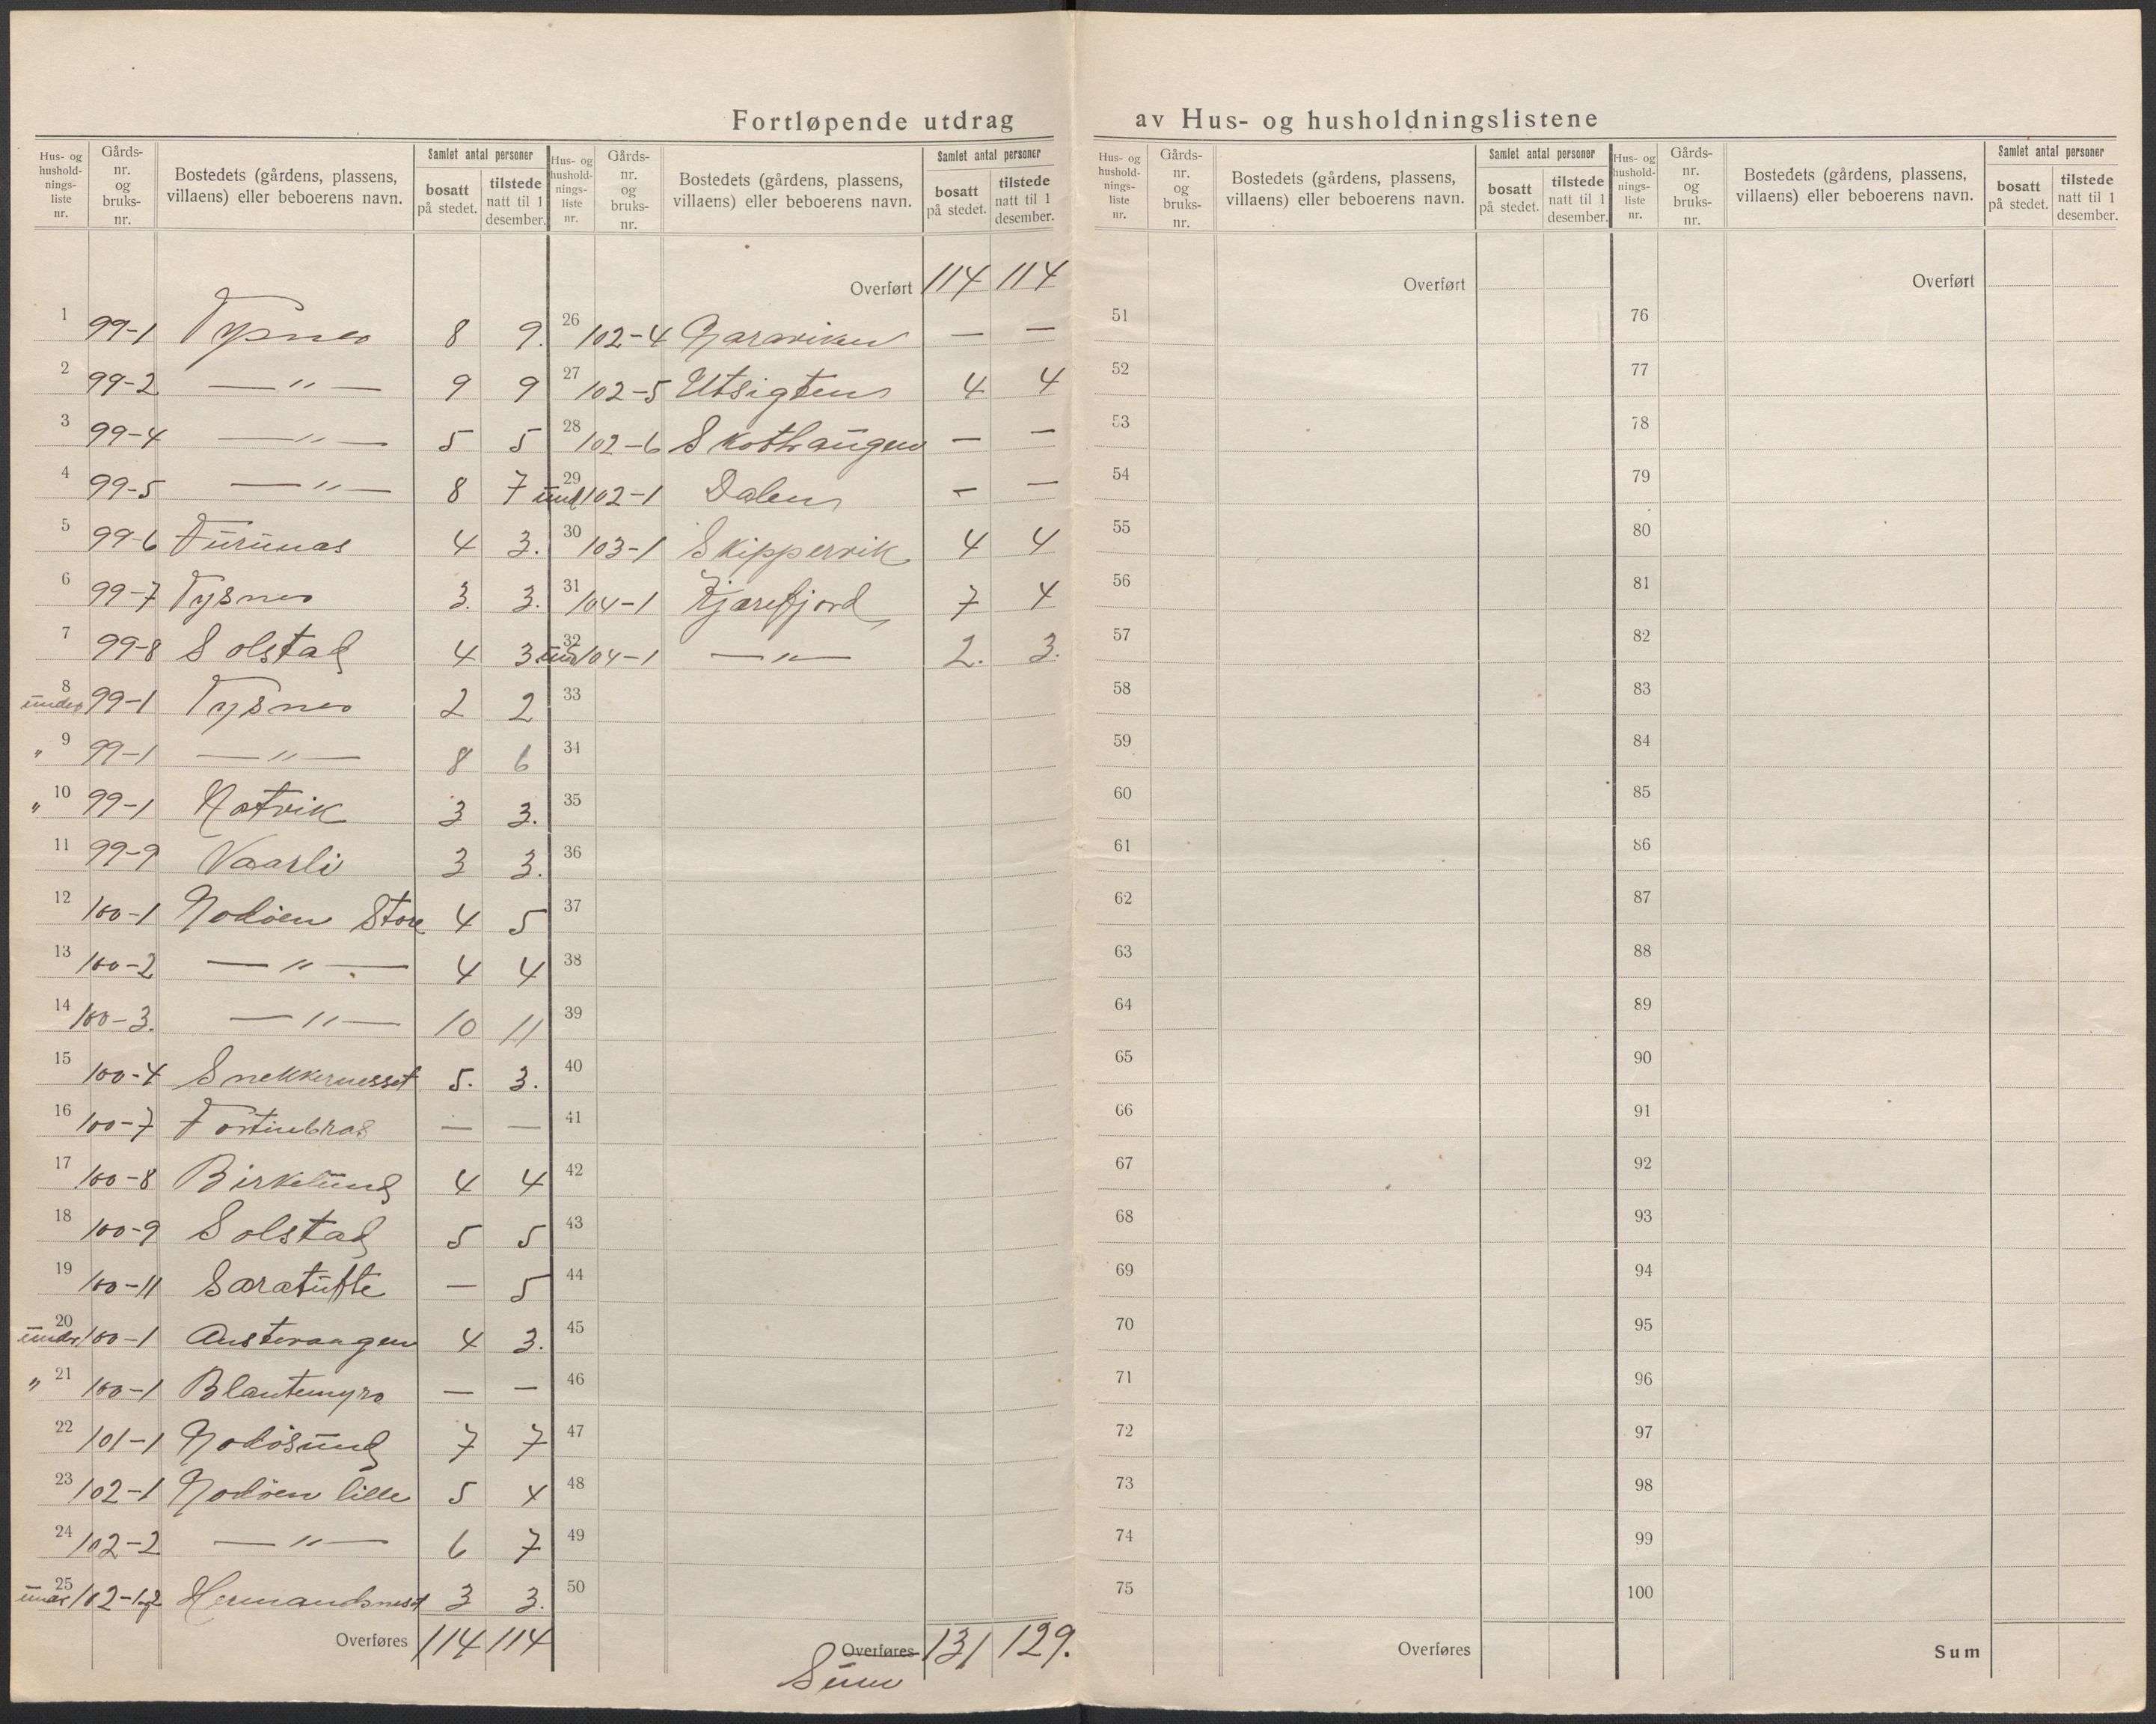 Fortløpende utdrag av Hus- og husholdningslistene
Hus- og hushold-nings-liste nr. Gårds-nr. og bruks-nr. Bostedets (gårdens, plassens, villaens) eller beboerens navn. Samlet antal personer bosatt på stedet. tilstede natt til 1 desember.
1 99-1 Tysnes 8 9.
2 99-2 — " — 9 9
3 99-4 — " — 5 5
4 99-5 — " — 8 7
5 99-6 Furunas 4 3.
6 99-7 Tysnes 3. 3.
7 99-8 Solstad 4 3
8 under 99-1 Tysnes 2 2
9 " 99-1 — " — 8 6
10 " 99-1 Hotvik 3 3.
11 99-9 Vaarli 3 3.
12 100-1 Nodöen Store 4 5
13 100-2 — " — 4 4
14 100-3. — " — 10 11
15 100-4 Snekkernesset 5. 3.
16 100-7 Fortinbras — —
17 100-8 Birkelund 4 4
18 100-9 Solstad 5 5
19 100-11 Saratufte — 5
20 under 100-1 Austeraagen 4 3.
21 " 100-1 Blautemyro — —
22 101-1 Nodösund 7 7
23 102-1 Nodöen lille 5 4
24 102-2 — " — 6 7
25 under 102-1og2 Hermandsnest 3 3.
Overføres 114 114
Hus- og hushold-nings-liste nr. Gårds-nr. og bruks-nr. Bostedets (gårdens, plassens, villaens) eller beboerens navn. Samlet antal personer bosatt på stedet. tilstede natt til 1 desember.
Overført 114 114
26 102-4 Naraviken — —
27 102-5 Utsigten 4 4
28 102-6 Skothaugen — —
29 und 102-1 Dalen — —
30 103-1 Skippervik 4 4
31 104-1 Kjærefjord 7 4
32 und 104-1 — " — 2. 3.
33
34
35
36
37
38
39
40
41
42
43
44
45
46
47
48
49
50
Overføres 131 129.
Sum
Hus- og hushold-nings-liste nr. Gårds-nr. og bruks-nr. Bostedets (gårdens, plassens, villaens) eller beboerens navn. Samlet antal personer bosatt på stedet. tilstede natt til 1 desember.
Overført
51
52
53
54
55
56
57
58
59
60
61
62
63
64
65
66
67
68
69
70
71
72
73
74
75
Overføres
Hus- og hushold-nings-liste nr. Gårds-nr. og bruks-nr. Bostedets (gårdens, plassens, villaens) eller beboerens navn. Samlet antal personer bosatt på stedet. tilstede natt til 1 desember.
Overført
76
77
78
79
80
81
82
83
84
85
86
87
88
89
90
91
92
93
94
95
96
97
98
99
100
Sum